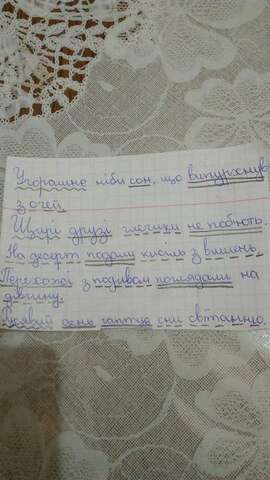 Угорашнє ніби сон, що випурхнув
з очей.
Щирі друзі глечики не поб'ють.
На десерт подали кисіль з вишень.
Перехожі з подивом поглядали на
дівчину.
день гаптує сни світанню.